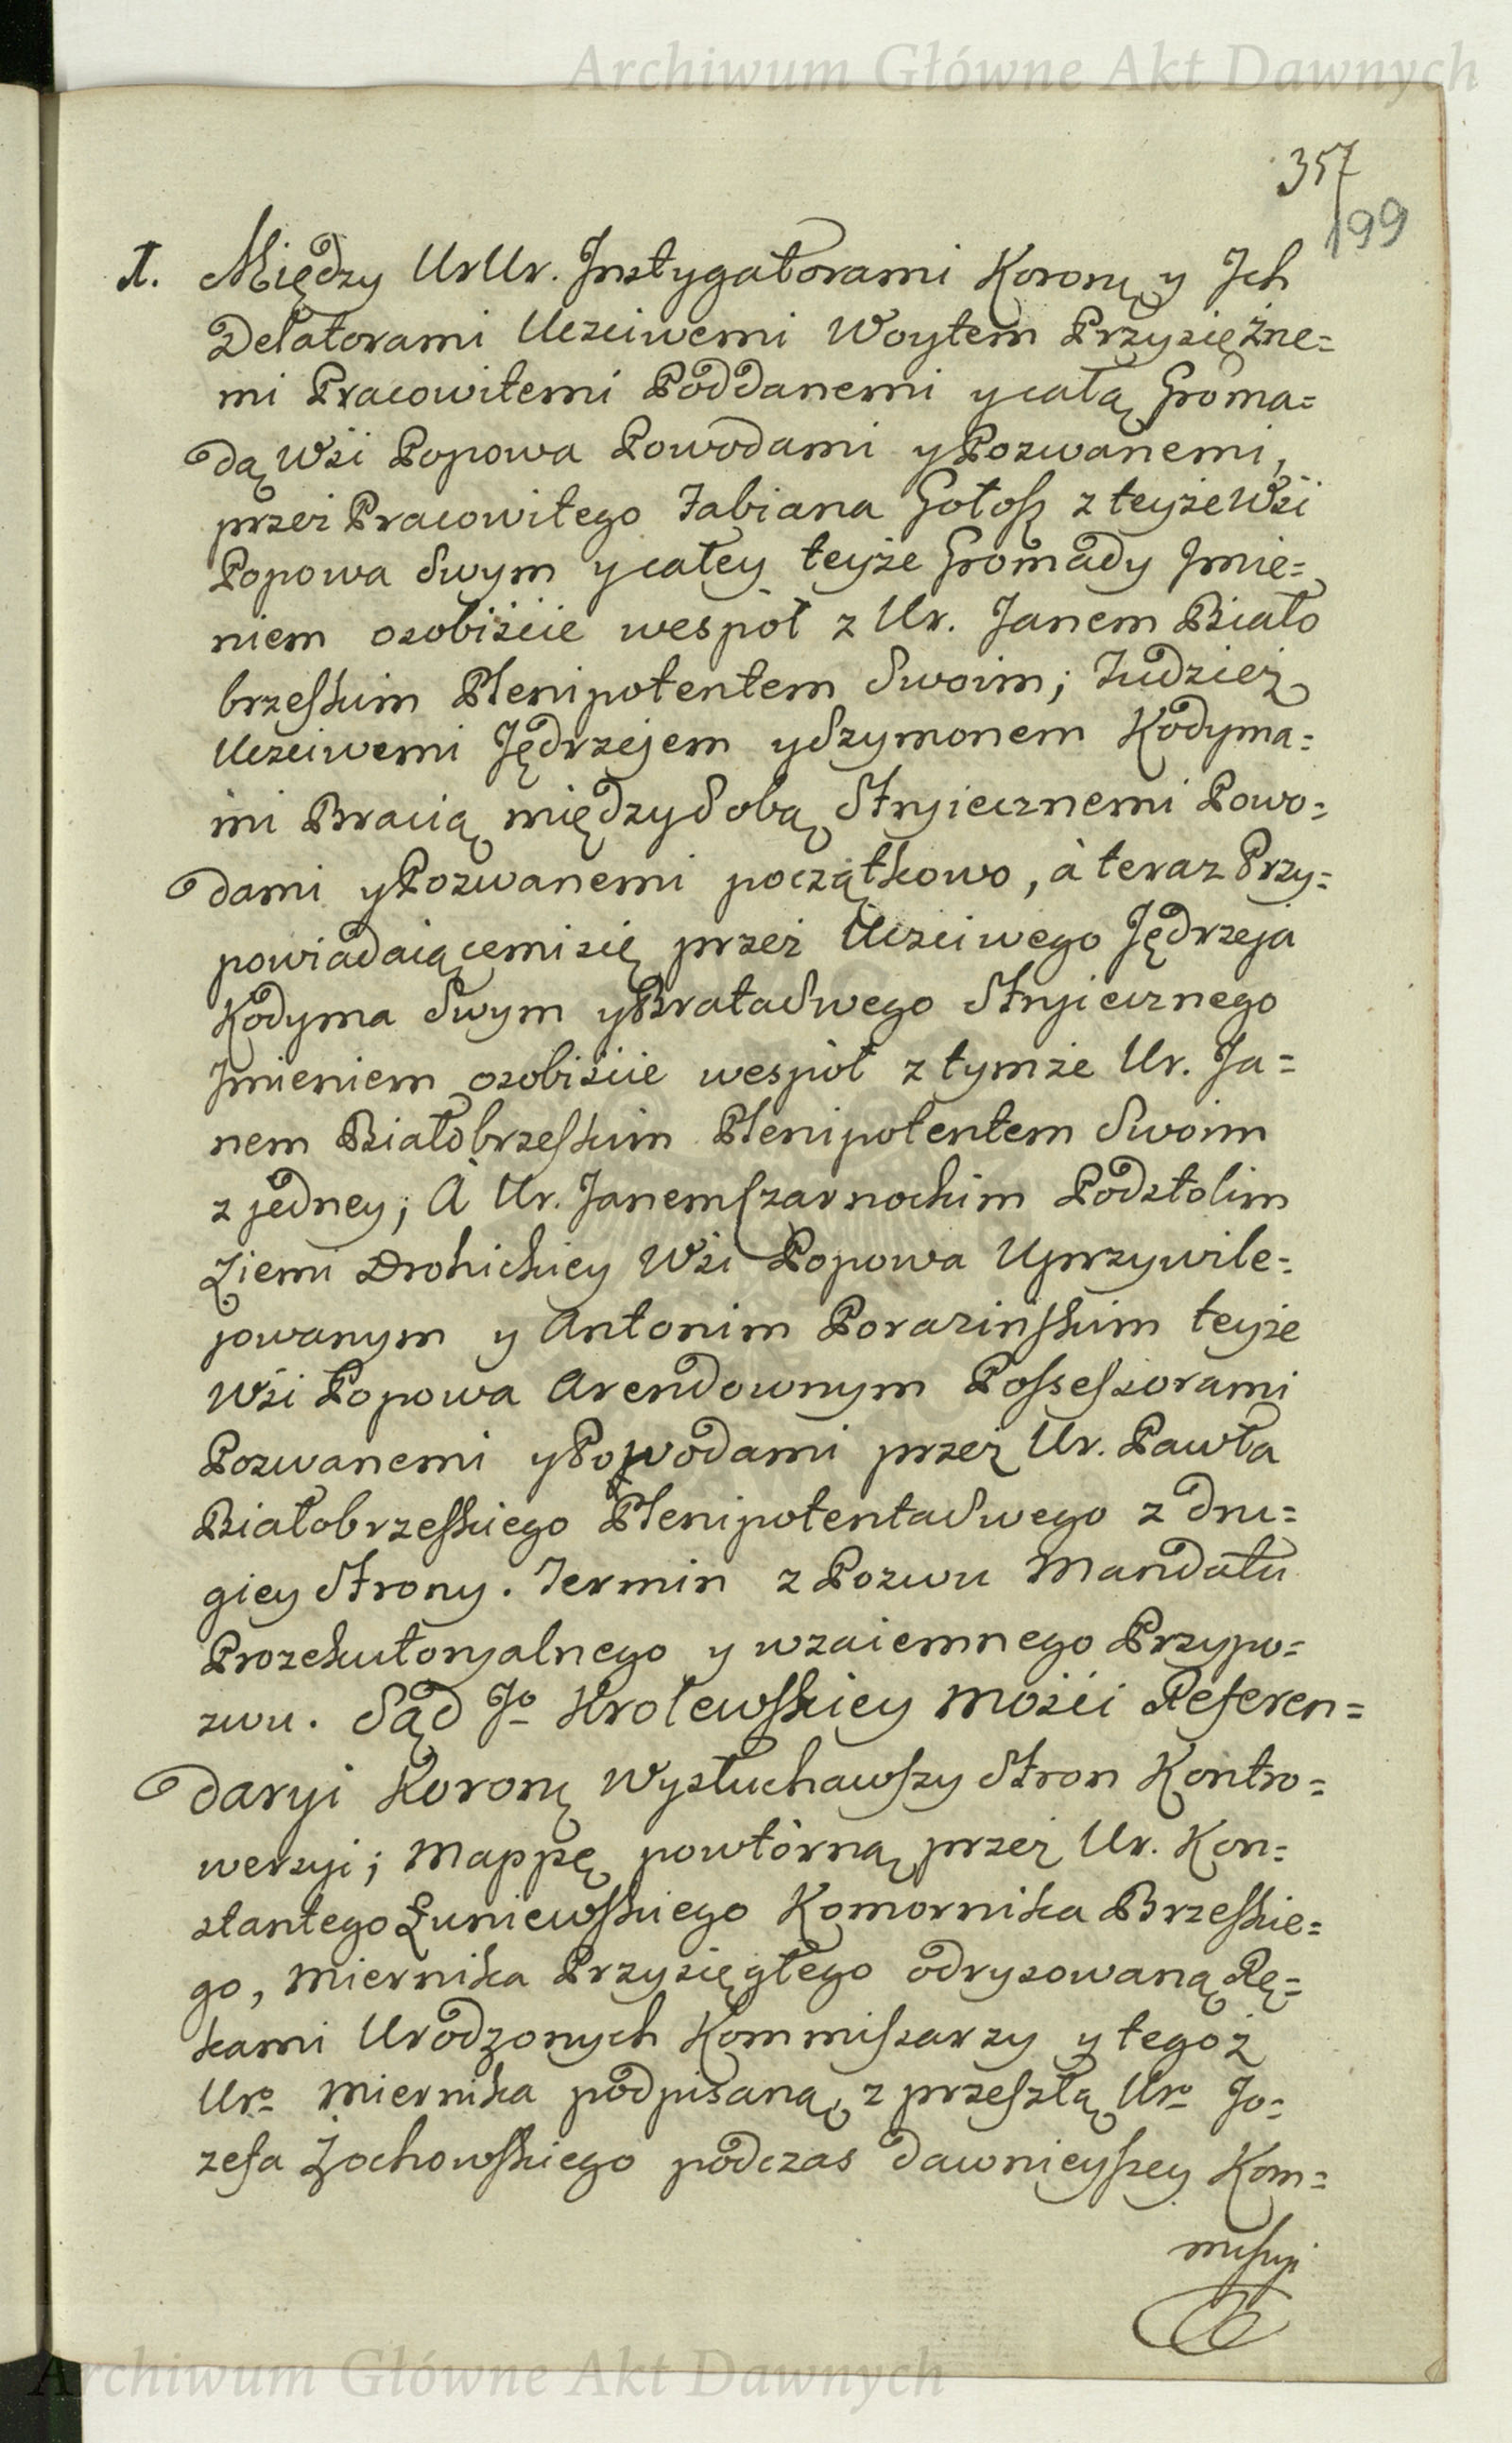 Archiwum Główne Akt Dawnych
357
199
1. Między UrUr. Instygatorami Korony y Ich
Delatorami Uczciwemi Woytem Przysiężne=
mi Pracowitemi Poddanemi y całą Groma=
dą Wsi Popowa Powodami y Pozwanemi,
przez Pracowitego Fabiana Gołosz z teyże Wsi
Popowa Swym y całey teyże Gromady Imie=
niem osobiście wespoł z Ur. Janem Biało
brzeskim Plenipotentem Swoim; Tudzież
Uczciwemi Jędrzejem y Szymonem Kodyma=
mi Bracią między Sobą Stryiecznemi Powo=
dami y Pozwanemi początkowo, à teraz Przy=
powiadaiącemi się przez Uczciwego Jędrzeja
Kodyma Swym y Brata Swego Stryiecznego
Imieniem osobiście wespół z tymże Ur. Ja=
nem Białobrzeskim Plenipotentem Swoim
z jedney; A Ur. Janem Czarnockim Podstolim
Ziemi Drohickiey Wsi Popowa Uprzywile=
jowanym y Antonim Porazińskim teyże
Wsi Popowa Arendownym Possessorami
Pozwanemi y Powodami przez Ur. Pawła
Białobrzeskiego Plenipotenta Swego z dru=
giey Strony. Termin z Pozwu Mandatu
Prozekutoryalnego y wzaiemnego Przypo=
zwu. Sąd Jo Krolewskiey Mości Referen=
daryi Korony Wysłuchawszy Stron Kontro=
wersyi; Mappę powtórną przez Ur. Kon=
stantego Łuniewskiego Komornika Brzeskie=
go, Miernika Przysięgłego odrysowaną Rę=
kami Urodzonych Kommissarzy y tegoż
Uro Miernika podpisaną, z przeszłą Uro Jo=
zefa Zochowskiego podczas dawnieyszey Kom=
missyi
Archiwum Główne Akt Dawnych